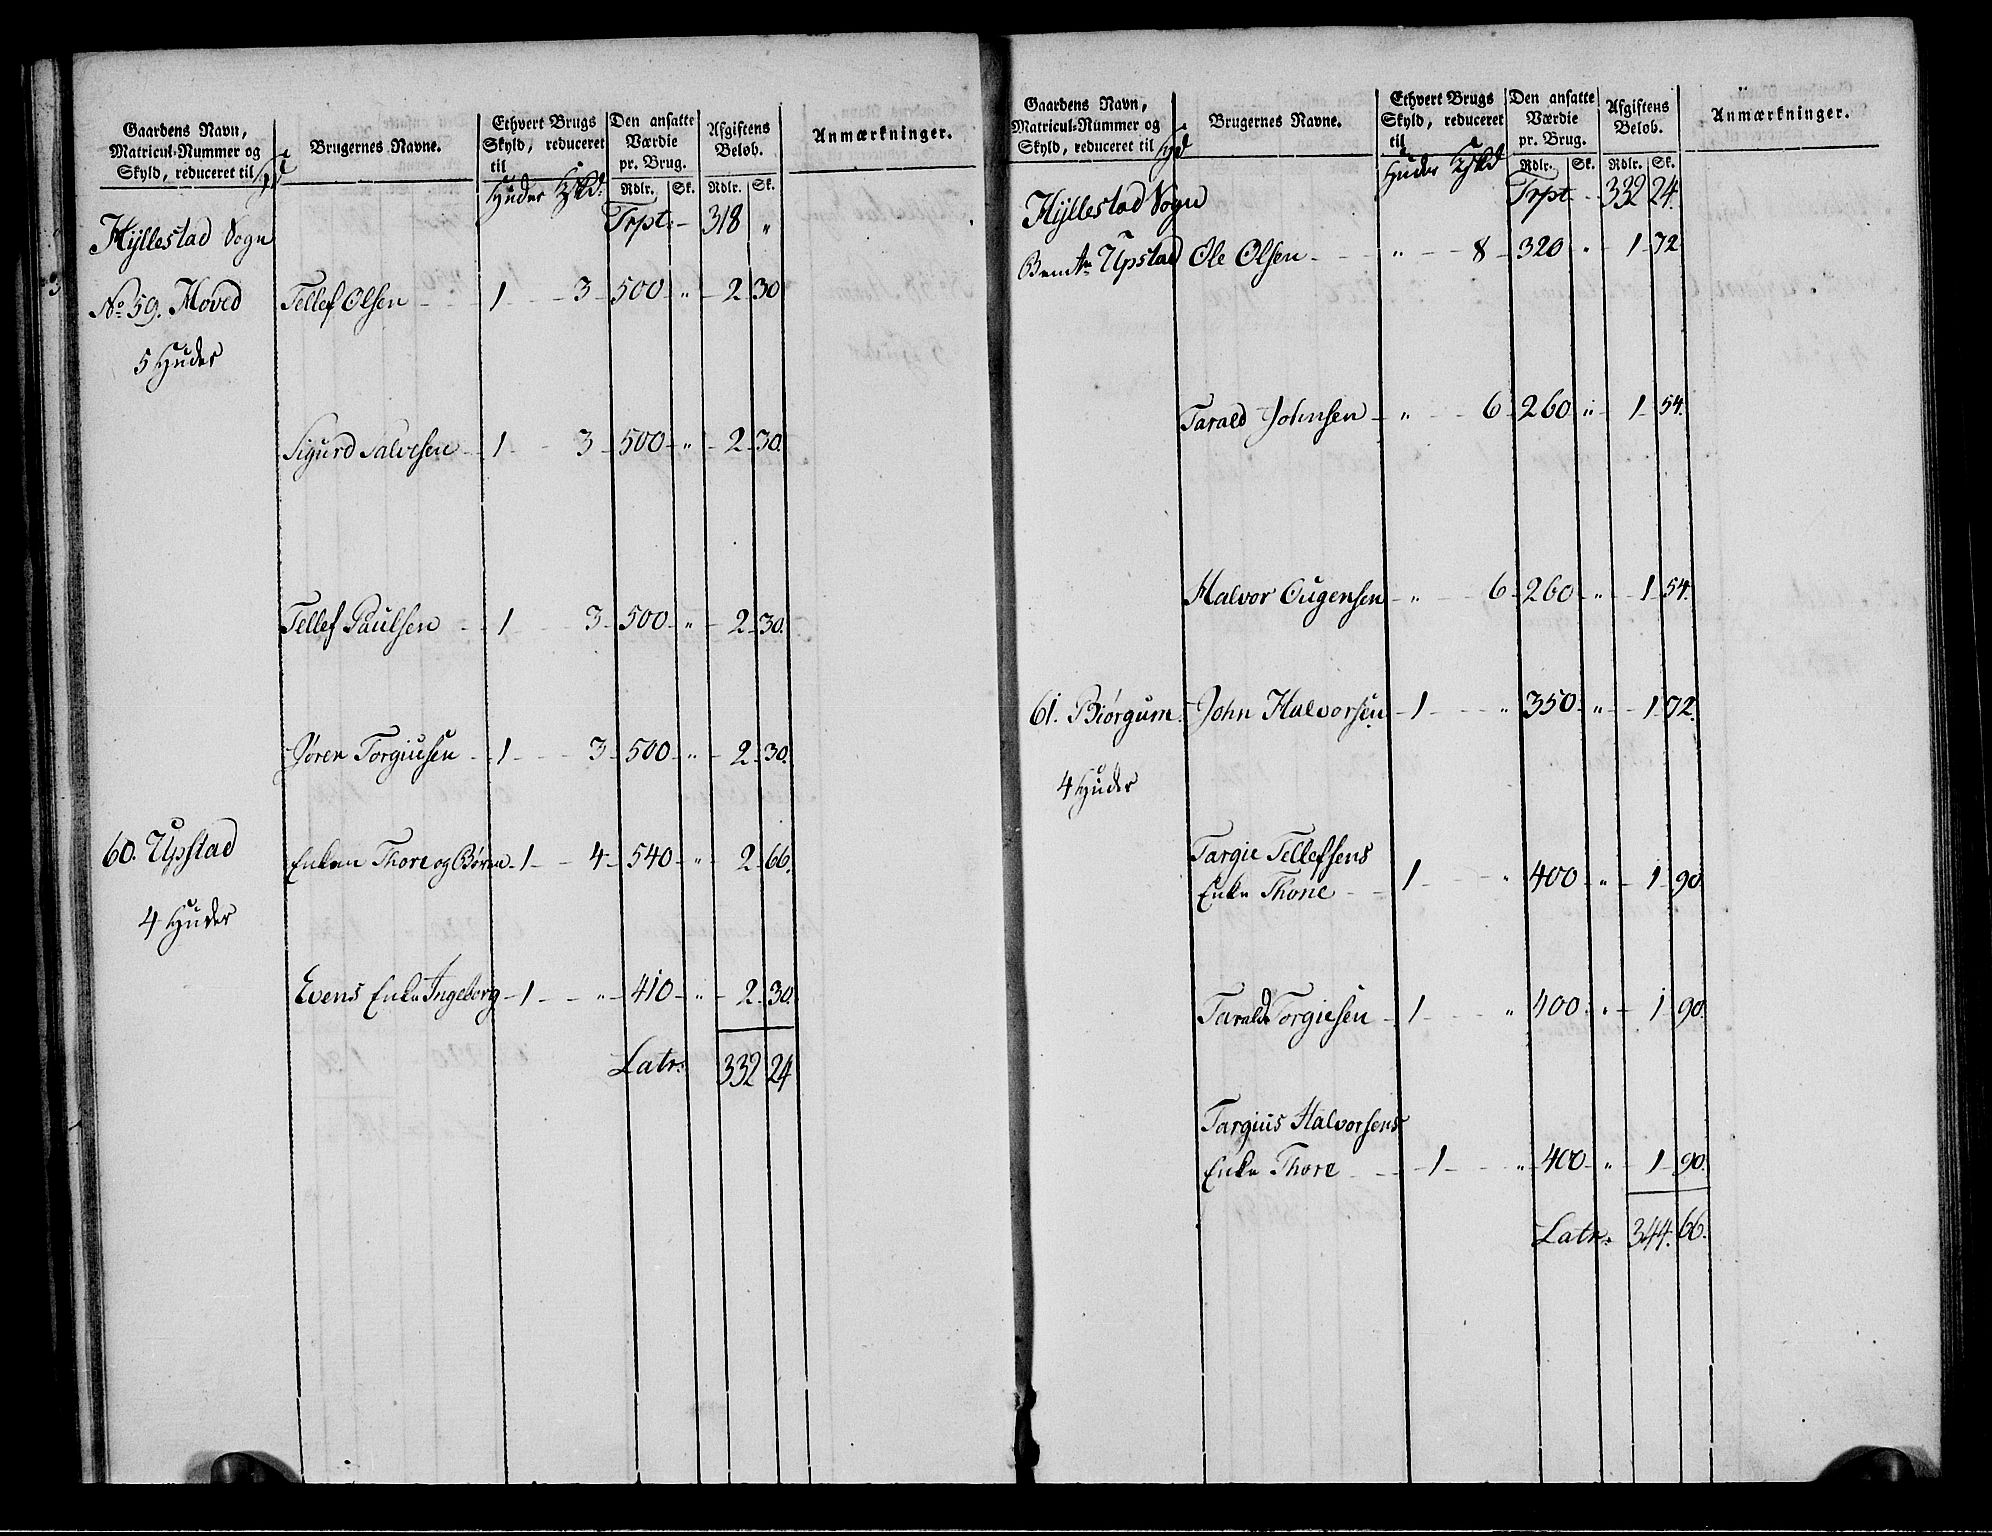 Gaardens Navn, Matricul-Nummer og Skyld, reduceret til
Brugernes Navne.
Ethvert Brugs Skyld, reduceret til
Huder
Den ansatte Værdie pr. Brug.
Rdlr. Sk.
Afgiftens Beløb.
Rdlr. Sk.
Anmærkninger.
Hyllestad Sogn Trpt: 318 "
No 59. Moved Tellef Olsen 1 3 500 " 2 30
5 Huder
Sigurd Salvesen 1 3 500 " 2 30.
Tellef Paulsen 1 3 500 " 2 30.
Søren Torgiusen 1 3 500 " 2 30.
60. Upstad Enken Thore og Børn 1 4 540 " 2 66.
4 Huder
Evens Enke Ingeborg 1 " 410 " 2 30.
Latr: 332 24
Gaardens Navn, Matricul-Nummer og Skyld, reduceret til
Brugernes Navne.
Ethvert Brugs Skyld, reduceret til
Huder
Den ansatte Værdie pr. Brug.
Rdlr. Sk.
Afgiftens Beløb.
Rdlr. Sk.
Anmærkninger.
Hyllestad Sogn Trpt 332 24.
Upstad Ole Olsen " 8 320 " 1 72
Tarald Johnsen " 6 260 " 1 54.
Halvor Ougensen " 6 260 " 1 54.
61. Biørgum John Halvorsen 1 " 350 " 1 72.
4 Huder
Targie Tellefsens
Enke Thone 1 " 400 " 1 90
Tarald Torgiesen 1 " 400 " 1 90
Targius Halvorsens
Enke Thore 1 " 400 " 1 90.
Latr: 344. 66.